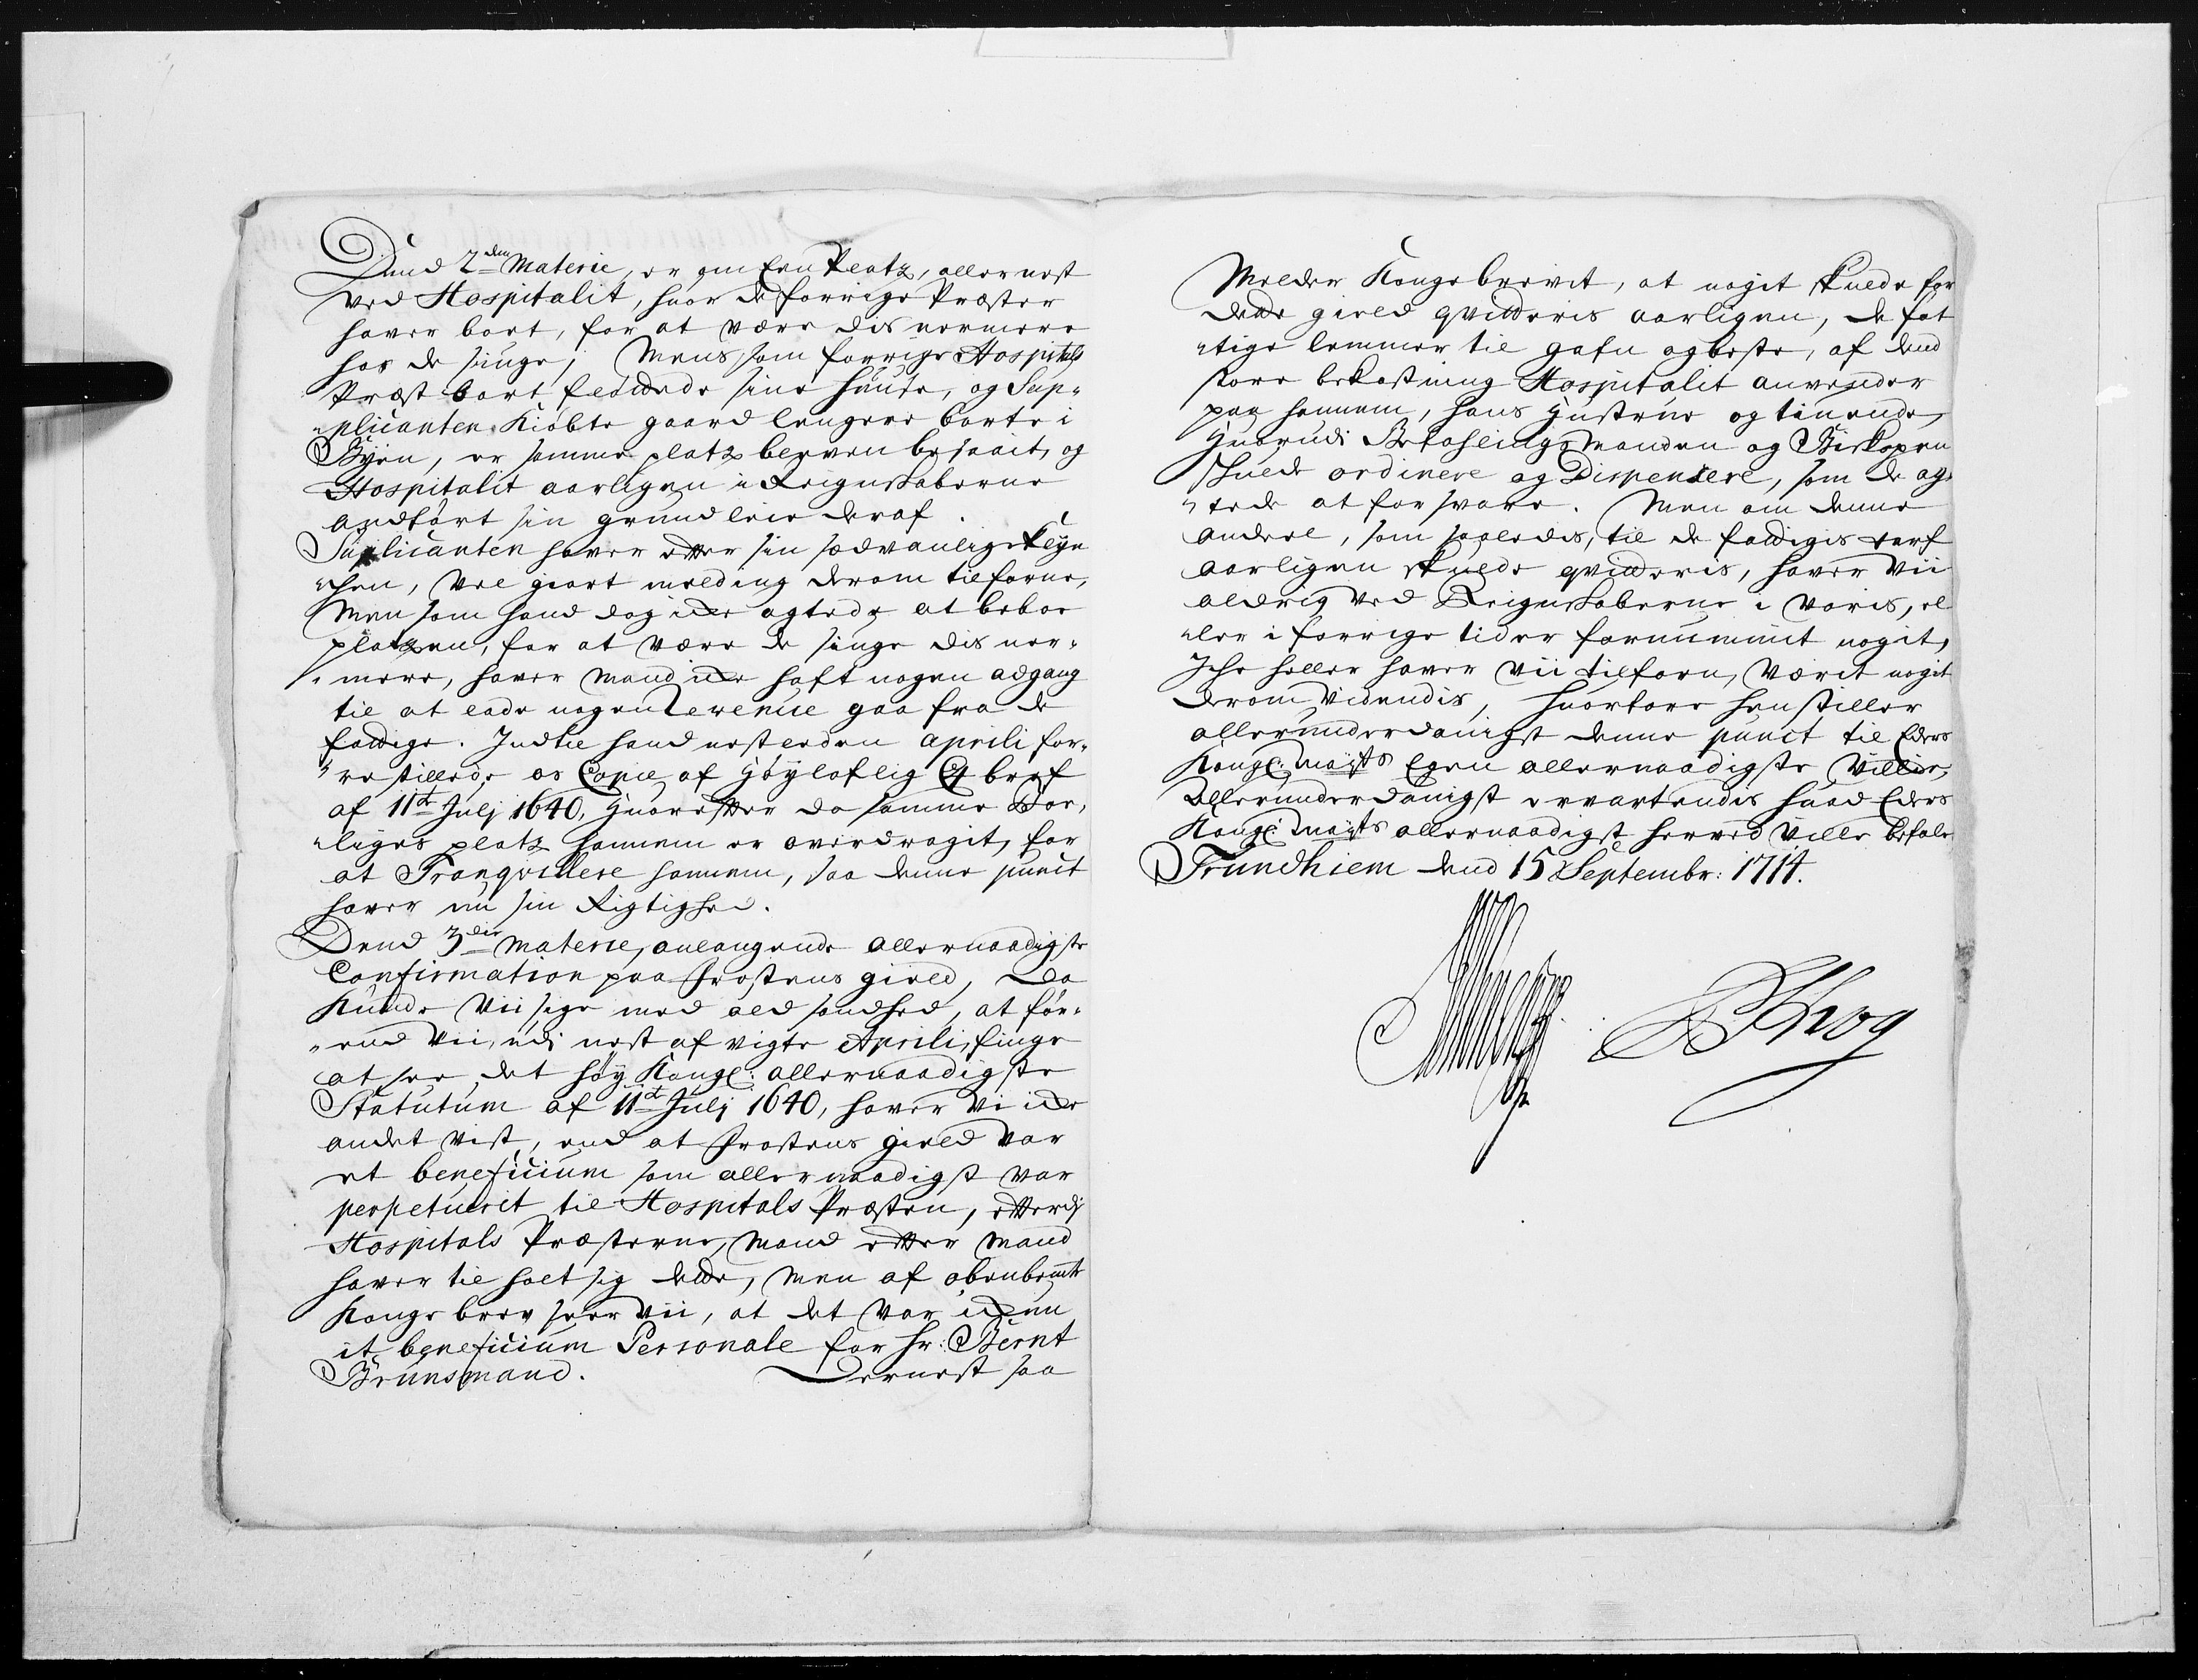 Dend 2den Materie, er om Een Platz, allernest
ved Hospitalit, huor de forrige Præster
haver boet, for at være dis nermere
hos de siuge; Mens som forrige Hospitals
Præst bort fløttede sine huuse, og Sup-
plicanten Kiøbte gaard lengere borte i
Byen, er samme platz bleven besaait, og
Hospitalit aarligen i Reignskaberne
andført sin grundleie deraf.
Suplicanten haver etter sin sedvanlige
Men som hand dog icke agtede at beboe
platzen, for at være de siuge dis ner-
mere, haver Mand icke haft nogen adgang
til at lade nogen Revenüe gaa fra de
fattige. Indtil hand nest leden Aprili fore-
restillede os Copie af Høyloflig bref
af 11te Julj 1640, Huorefter da samme Bor-
liges platz hannem er overdragit, for
at Tranqvillere hannem, saa denne punct
haver nu sin Rigtighed.
Dend 3die Materie, anlangende Allernaadigste
Confirmation paa Frostens gield, da
Kunde Vii sige med ald sandhed, at før-
end Vii, udi nest af vigte Aprili, finge
at see, det høy Kongl: allernaadigste
Statutum af 11te Julj 1640, haver Vi icke
andet vist, end at Frostens gield var
et beneficium som allernaadigst var
perpetuerit til Hospitals Præsten, etterdj
Hospitals Præsterne, Mand etter Mand
haver til holt sig dette, Men af obenbemte
Konge brev seer Vii, at det var ickun
it beneficium Personale for Hr: Bernt
Brunsmand. Dernest saa
Melder Kongebrevit, at nogit skulde for
dette gield qvitteris aarligen, de fat-
tige lemmer til gafn og beste, af dend
store bekostning Hospitalit anvender
paa hannem, hans Hustrue og tienende,
Huorudi Befalingsmanden og Biskopen
skulde ordinere og Dispensere, som de ag-
tede at forsvare. Men om denne
andeel, som saaledis, til de fattigis tarf
aarligen skulde qvitteris, haver Vii
aldrig ved Reignskaberne i Voris, el-
ler i forrige tider fornummit nogit,
Iche heller haver Vii tilforn, Værit nogit
derom Videndis, Huorfore henstiller
allerunderdanigst denne punct til Eders
Kongl: Mayts Egen allernaadigste Villie,
Allerunderdanigst ervartendis huad Eders
Kongl: Mayts allernaadigst herved Ville befale
Trundhiem dend 15 Septembr: 1714.
Krog